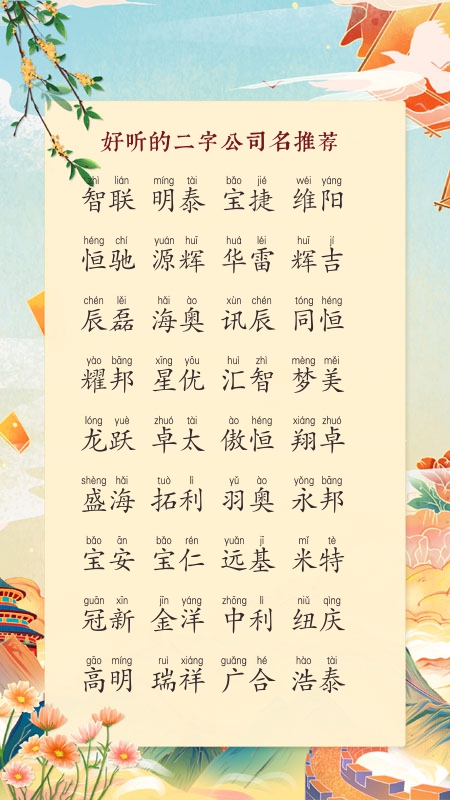 好听的二字公司名推荐
zhì lián míng tài bǎo jié wéi yáng
智联 明泰 宝捷 维阳
héng chí yuán huī huá léi huī jí
恒驰 源辉 华雷 辉吉
chén lěi hǎi ào xùn chén tóng héng
辰磊 海奥 讯辰 同恒
yào bāng xīng yōu huì zhì mèng měi
耀邦 星优 汇智 梦美
lóng yuè zhuó tài ào héng xiáng zhuó
龙跃 卓太 傲恒 翔卓
shèng hǎi tuò lì yǔ ào yǒng bāng
盛海 拓利 羽奥 永邦
bǎo ān bǎo rén yuǎn jī mǐ tè
宝安 宝仁 远基 米特
guān xīn jīn yáng zhōng lì niǔ qìng
冠新 金洋 中利 纽庆
gāo míng ruì xiáng guǎng hé hào tài
高明 瑞祥 广合 浩泰